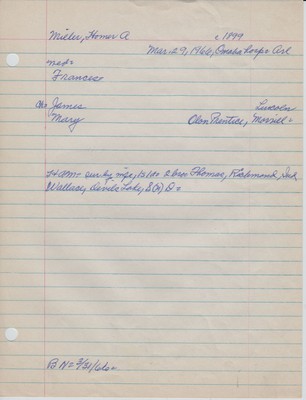 Miller, Homer A c 1899
Mar-29, 1966, Omaha hosp= Arl
med=
Frances=
Ch: James Lincoln
Mary Olon Prentice, Morrill=
surby wife, 2 bros Thomas, Richmond, Ind
Wallace, Devils Lake,
B N= 3/31/66=